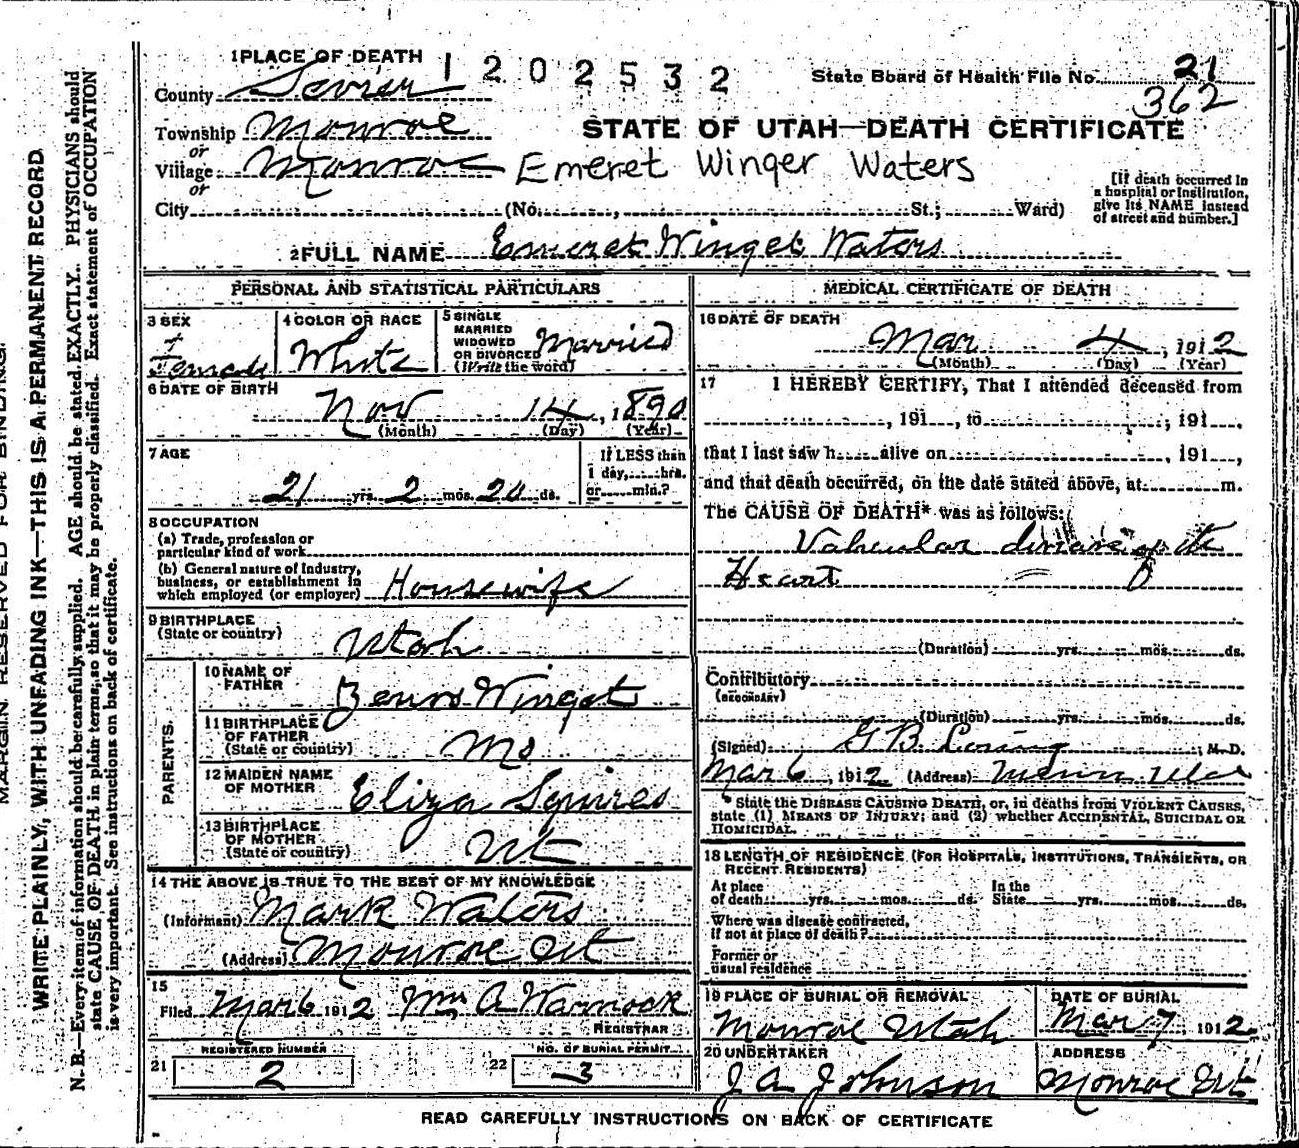 MARGIN RESERVED FOR BINDING.
WRITE PLAINLY, WITH UNFADING INK—THIS IS A PERMANENT RECORD
N. B.—Every item of information should be carefully supplied. AGE should be stated EXACTLY. PHYSICIANS should
state CAUSE OF DEATH in plain terms, so that it may be properly classified. Exact statement of OCCUPATION
is very important. See instructions on back of certificate.
1 PLACE OF DEATH 1202532 State Board of Health File No. 21
County Sevier 362
Township Monroe STATE OF UTAH—DEATH CERTIFICATE
or
Village Monroe Emeret Winger Waters
or
City (No. , St.; Ward)
[If death occurred in
a hospital or institution,
give its NAME instead
of street and number.]
2 FULL NAME Emeret Winget Waters
PERSONAL AND STATISTICAL PARTICULARS
3 SEX Female
4 COLOR OR RACE White
5 SINGLE
MARRIED
WIDOWED
OR DIVORCED
(Write the word) Married
6 DATE OF BIRTH
Nov 14, 1890
(Month) (Day) (Year)
7 AGE
21 yrs. 2 mos. 20 ds.
If LESS than
1 day, hrs.
or min.?
8 OCCUPATION
(a) Trade, profession or
particular kind of work
(b) General nature of Industry,
business, or establishment in
which employed (or employer) Housewife
9 BIRTHPLACE
(State or country) Utah
PARENTS
10 NAME OF
FATHER Zenos Winget
11 BIRTHPLACE
OF FATHER
(State or country) Mo
12 MAIDEN NAME
OF MOTHER Eliza Squires
13 BIRTHPLACE
OF MOTHER
(State or country) Ut
14 THE ABOVE IS TRUE TO THE BEST OF MY KNOWLEDGE
(Informant) Mark Waters
(Address) Monroe Ut
15
Filed Mar 6 1912 Wm A Warnock
REGISTRAR
21 REGISTERED NUMBER 2
22 NO. OF BURIAL PERMIT 3
MEDICAL CERTIFICATE OF DEATH
16 DATE OF DEATH
Mar 4, 1912
(Month) (Day) (Year)
17 I HEREBY CERTIFY, That I attended deceased from
, 191 , to , 191 ,
that I last saw h alive on , 191 ,
and that death occurred, on the date stated above, at m.
The CAUSE OF DEATH* was as follows:
Valvular disease of the
Heart
(Duration) yrs. mos. ds.
Contributory
(SECONDARY)
(Duration) yrs. mos. ds.
(Signed) G B , M. D.
Mar 6, 1912 (Address)
* State the DISEASE CAUSING DEATH, or, in deaths from VIOLENT CAUSES,
state (1) MEANS OF INJURY; and (2) whether ACCIDENTAL, SUICIDAL OR
HOMICIDAL.
18 LENGTH OF RESIDENCE (FOR HOSPITALS, INSTITUTIONS, TRANSIENTS, OR
RECENT RESIDENTS)
At place
of death yrs. mos. ds.
In the
State yrs. mos. ds.
Where was disease contracted,
if not at place of death?
Former or
usual residence
19 PLACE OF BURIAL OR REMOVAL
Monroe Utah
DATE OF BURIAL
Mar 7, 1912
20 UNDERTAKER
J A Johnson
ADDRESS
Monroe Ut
READ CAREFULLY INSTRUCTIONS ON BACK OF CERTIFICATE